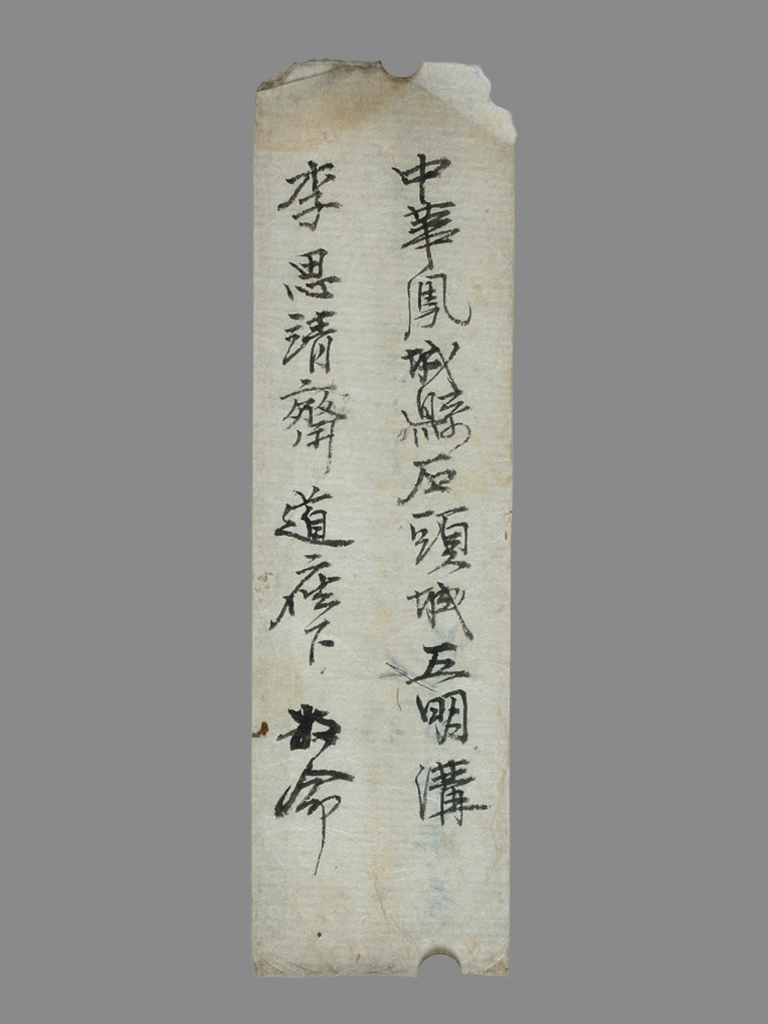 中華鳳城縣石頭城五明溝
李思靖齋道座下 敬命